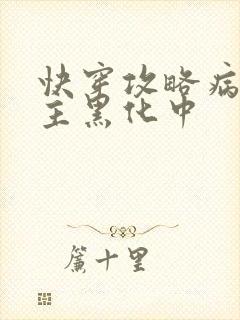 快穿攻略病
主黑化中
簾十里